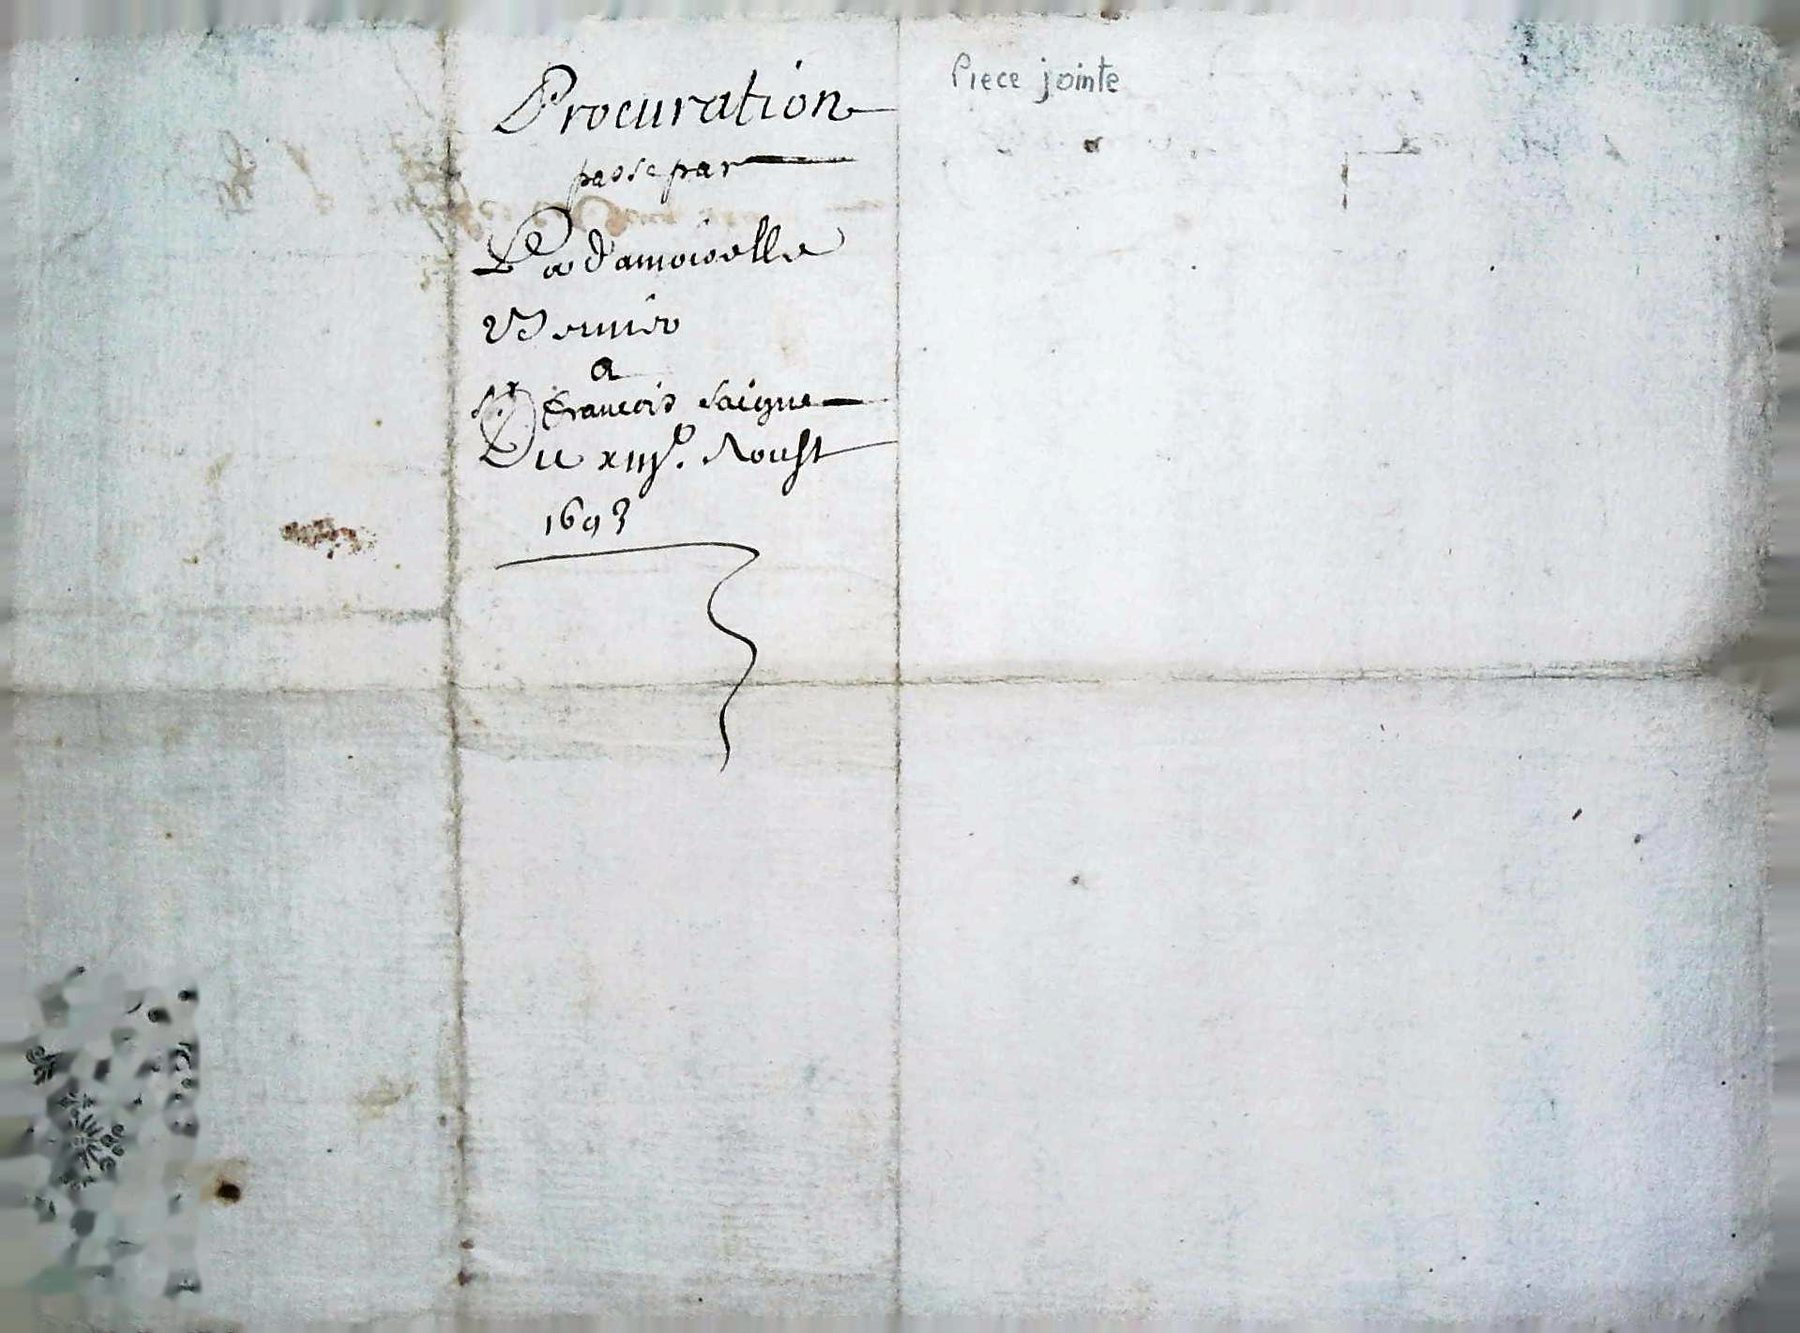 Procuration
passe par
La damoiselle
Vernier
a
Sr francois saigne
Du xiije. Aoust
1693
Piece jointe